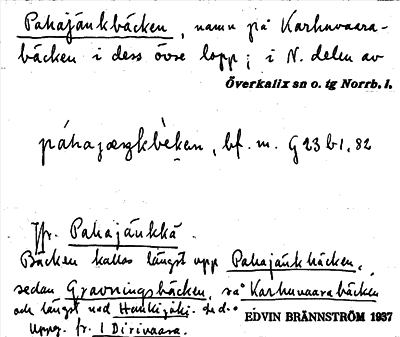 Pahajänkbäcken, namn på Karhuvaara-
bäcken i dess övre lopp; i N. delen av
Överkalix sn o. tg Norrb. l.
páhajæŋkbèken, bf. m. G 23 b1. 82
Jfr. Pahajänkkä.
Bäcken kallas längst upp Pahajänkbäcken,
sedan Gravningsbäcken, så Karhuvaarabäcken
och längst ned Hankijoki.
EDVIN BRÄNNSTRÖM 1937
Uppg. fr. 1 Dirivaara.